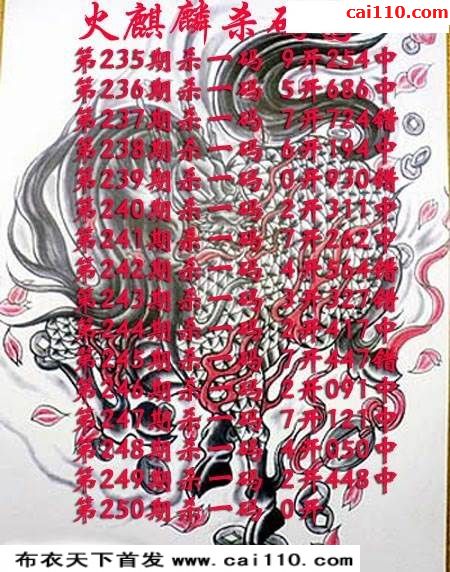 cai110.com
火麒麟杀
第235期杀一码 9开254中
第236期杀一码 5开686中
第237期杀一码 7开724错
第238期杀一码 6开194中
第239期杀一码 0开930错
第240期杀一码 2开311中
第241期杀一码 7开262中
第242期杀一码 4开564错
第243期杀一码 3开327错
第244期杀一码 2开417中
第245期杀一码 开447错
第246期杀一码 2开091中
第247期杀一码 7开121中
第248期杀一码 4开050中
第249期杀一码 2开448中
第250期杀一码 0开
布衣天下首发 www.cai110.com